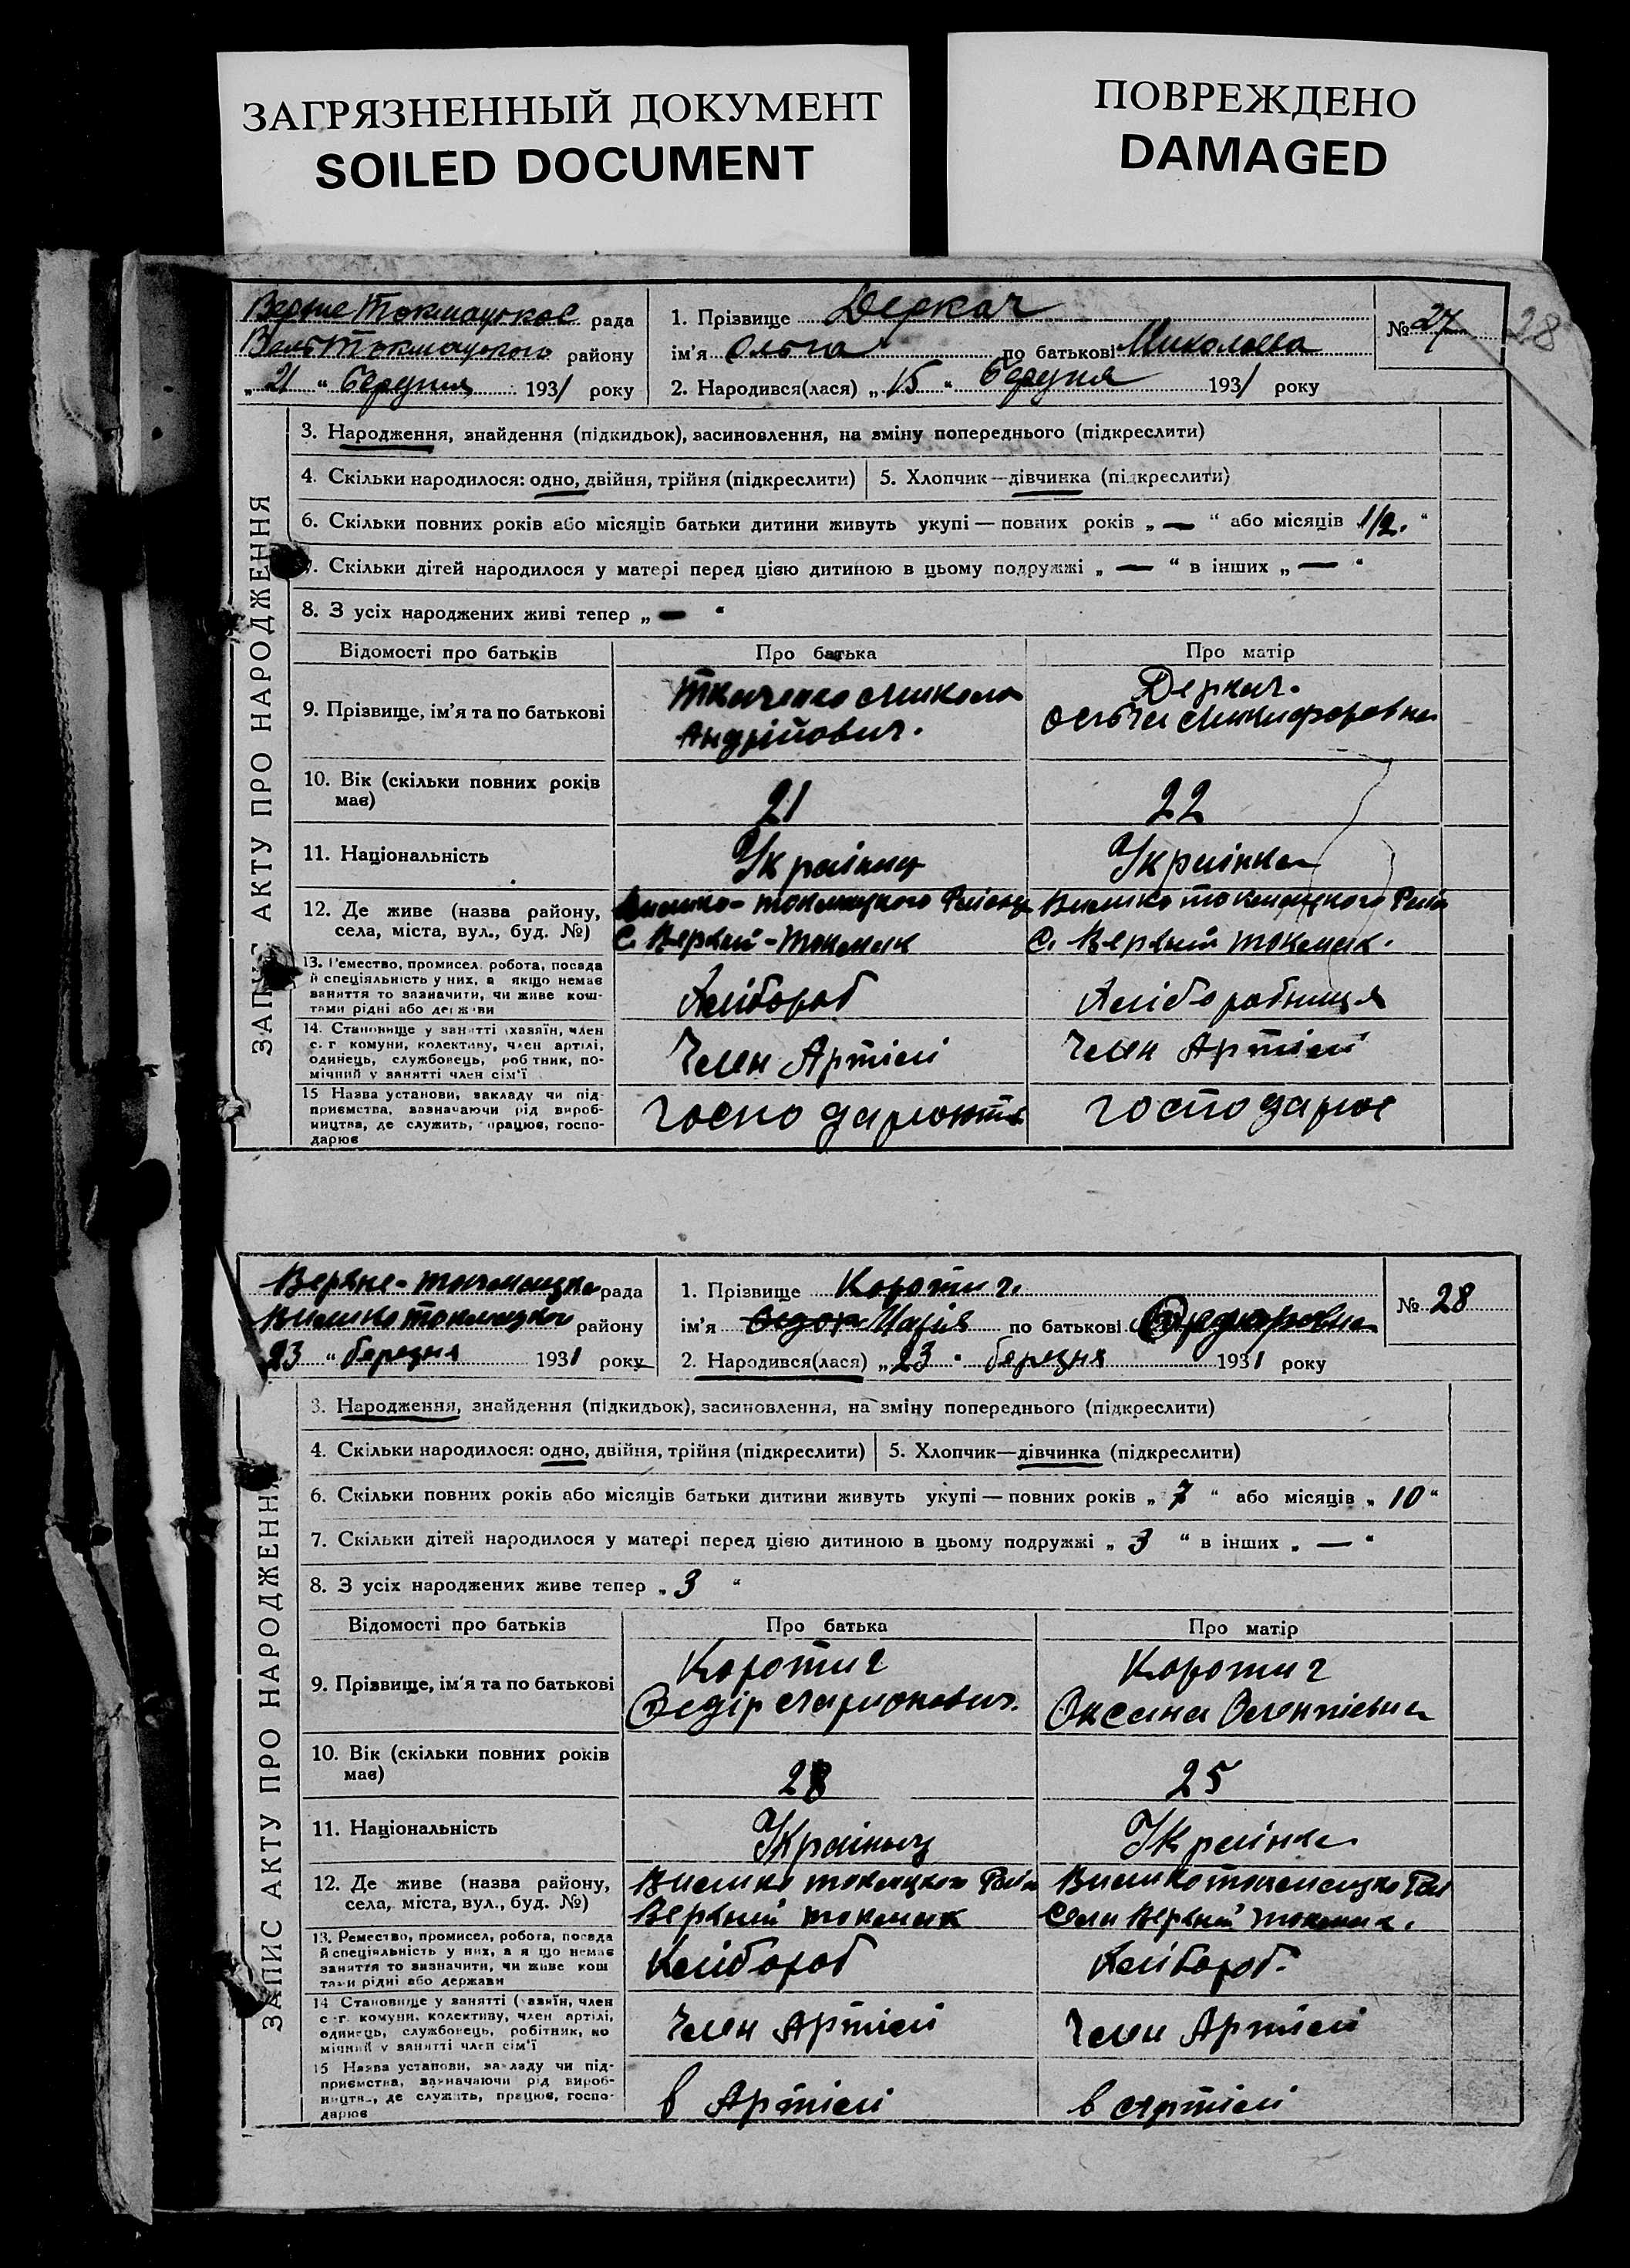 ЗАГРЯЗНЕННЫЙ ДОКУМЕНТ
SOILED DOCUMENT
ПОВРЕЖДЕНО
DAMAGED
28
рада
району
„21“ березня 1931 року
1. Прізвище Деркач
ім’я Ольга по батькові Миколаєва
2. Народився(лася) „15“ березня 1931 року
№ 27
ЗАПИС АКТУ ПРО НАРОДЖЕННЯ
3. Народження, знайдення (підкидьок), засиновлення, на зміну попереднього (підкреслити)
4. Скільки народилося: одно, двійня, трійня (підкреслити) 5. Хлопчик—дівчинка (підкреслити)
6. Скільки повних років або місяців батьки дитини живуть укупі — повних років „—“ або місяців „1/2.“
7. Скільки дітей народилося у матері перед цією дитиною в цьому подружжі „—“ в інших „—“
8. З усіх народжених живі тепер „—“
Відомості про батьків Про батька Про матір
9. Прізвище, ім’я та по батькові
Ткаченко Микола
Андрійович.
Деркач.
Ольга Никифоровна
10. Вік (скільки повних років
має)
21 22
11. Національність Українец Українка
12. Де живе (назва району,
села, міста, вул., буд. №)
Велико-токмацкого Району
С. Верхній-Токмак
Велико токмацкого Рай
С. Верхний токмак.
13. Ремество, промисел, робота, посада
й спеціяльність у них, а якщо немає
заняття то зазначити, чи живе кош-
тами рідні або держави
Хлібороб Хліборобниця
14. Становище у занятті (хазяїн, член
с.-г. комуни, колективу, член артілі,
одинець, службовець, робітник, по-
мічний у занятті член сім’ї
Член Артілі Член Артілі
15 Назва установи, закладу чи під-
приємства, зазначаючи рід вироб-
ництва, де служить, працює, госпо-
дарює
господарюють господарює
рада
району
23 “ березня 1931 року
1. Прізвище Коротич
ім’я Марія по батькові Федоровна
2. Народився(лася) „23“ березня 1931 року
№ 28
ЗАПИС АКТУ ПРО НАРОДЖЕННЯ
3. Народження, знайдення (підкидьок), засиновлення, на зміну попереднього (підкреслити)
4. Скільки народилося: одно, двійня, трійня (підкреслити) 5. Хлопчик—дівчинка (підкреслити)
6. Скільки повних років або місяців батьки дитини живуть укупі — повних років „7“ або місяців „10“
7. Скільки дітей народилося у матері перед цією дитиною в цьому подружжі „3“ в інших „—“
8. З усіх народжених живе тепер „3“
Відомості про батьків Про батька Про матір
9. Прізвище, ім’я та по батькові
Коротич
Федір Ларионович.
Коротич
Оксана
10. Вік (скільки повних років
має)
28 25
11. Національність Українец Українка
12. Де живе (назва району,
села, міста, вул., буд. №)
Велико токмацкого Рай
Верхний токмак
Велико токмацко Рай
Села Верхний токмак.
13. Ремество, промисел, робота, посада
й спеціяльність у них, а якщо немає
заняття то визначити, чи живе кош
тами рідні або держави
Хлібороб Хлібороб.
14 Становище у занятті (хазяїн, член
с.-г. комуни, колективу, член артілі,
одинець, службовець, робітник, по
мічний у занятті член сім’ї
Член Артілі Член Артілі
15 Назва установи, закладу чи під-
приємства, зазначаючи рід вироб-
ництва, де служить, працює, госпо-
дарює
в Артілі в артілі